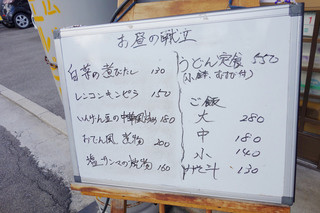 お昼の献立
白菜の煮びたし 130
レンコンキンピラ 150
いんげん豆の中華風 180
おでん風煮物 200
塩サンマの焼物 160
うどん定食 550
(小鉢、むすび付)
ご飯
大 280
中 180
小 140
130